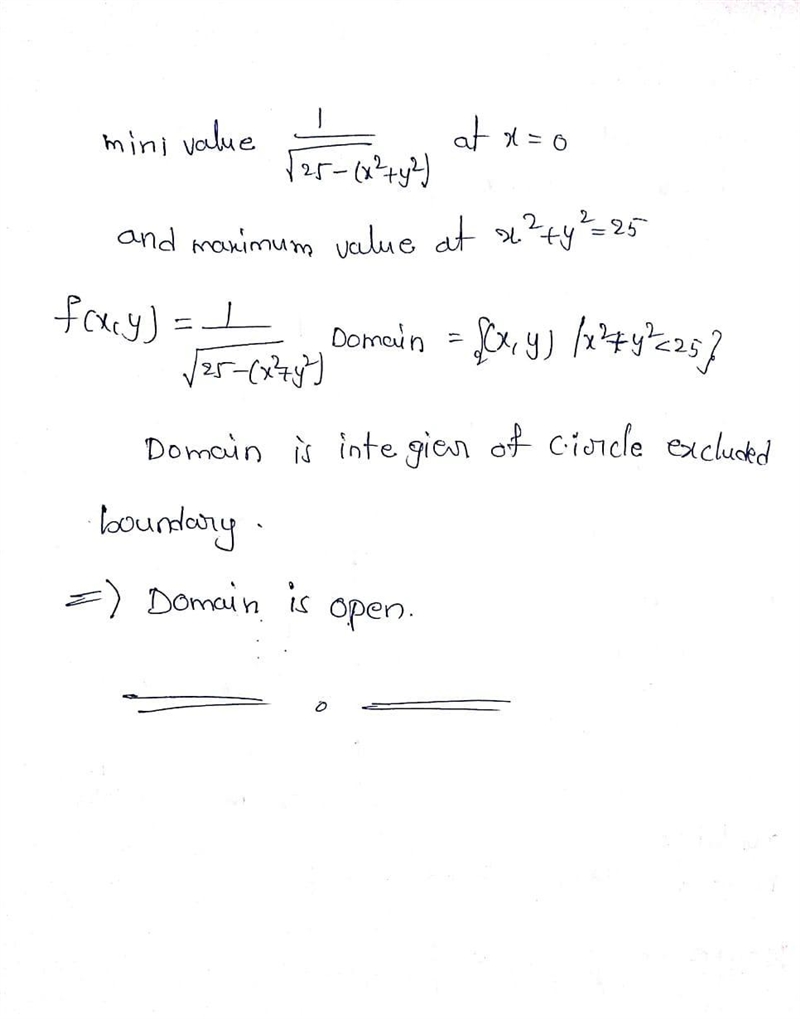 mini value 1/√25-(x²+y²) at x = 0
and maximum value at x²+y²=25
f(x,y) = 1/√25-(x²+y²) Domain = {(x, y) / x²+y²<25}
Domain is integier of circle excluded
boundary.
=) Domain is open.